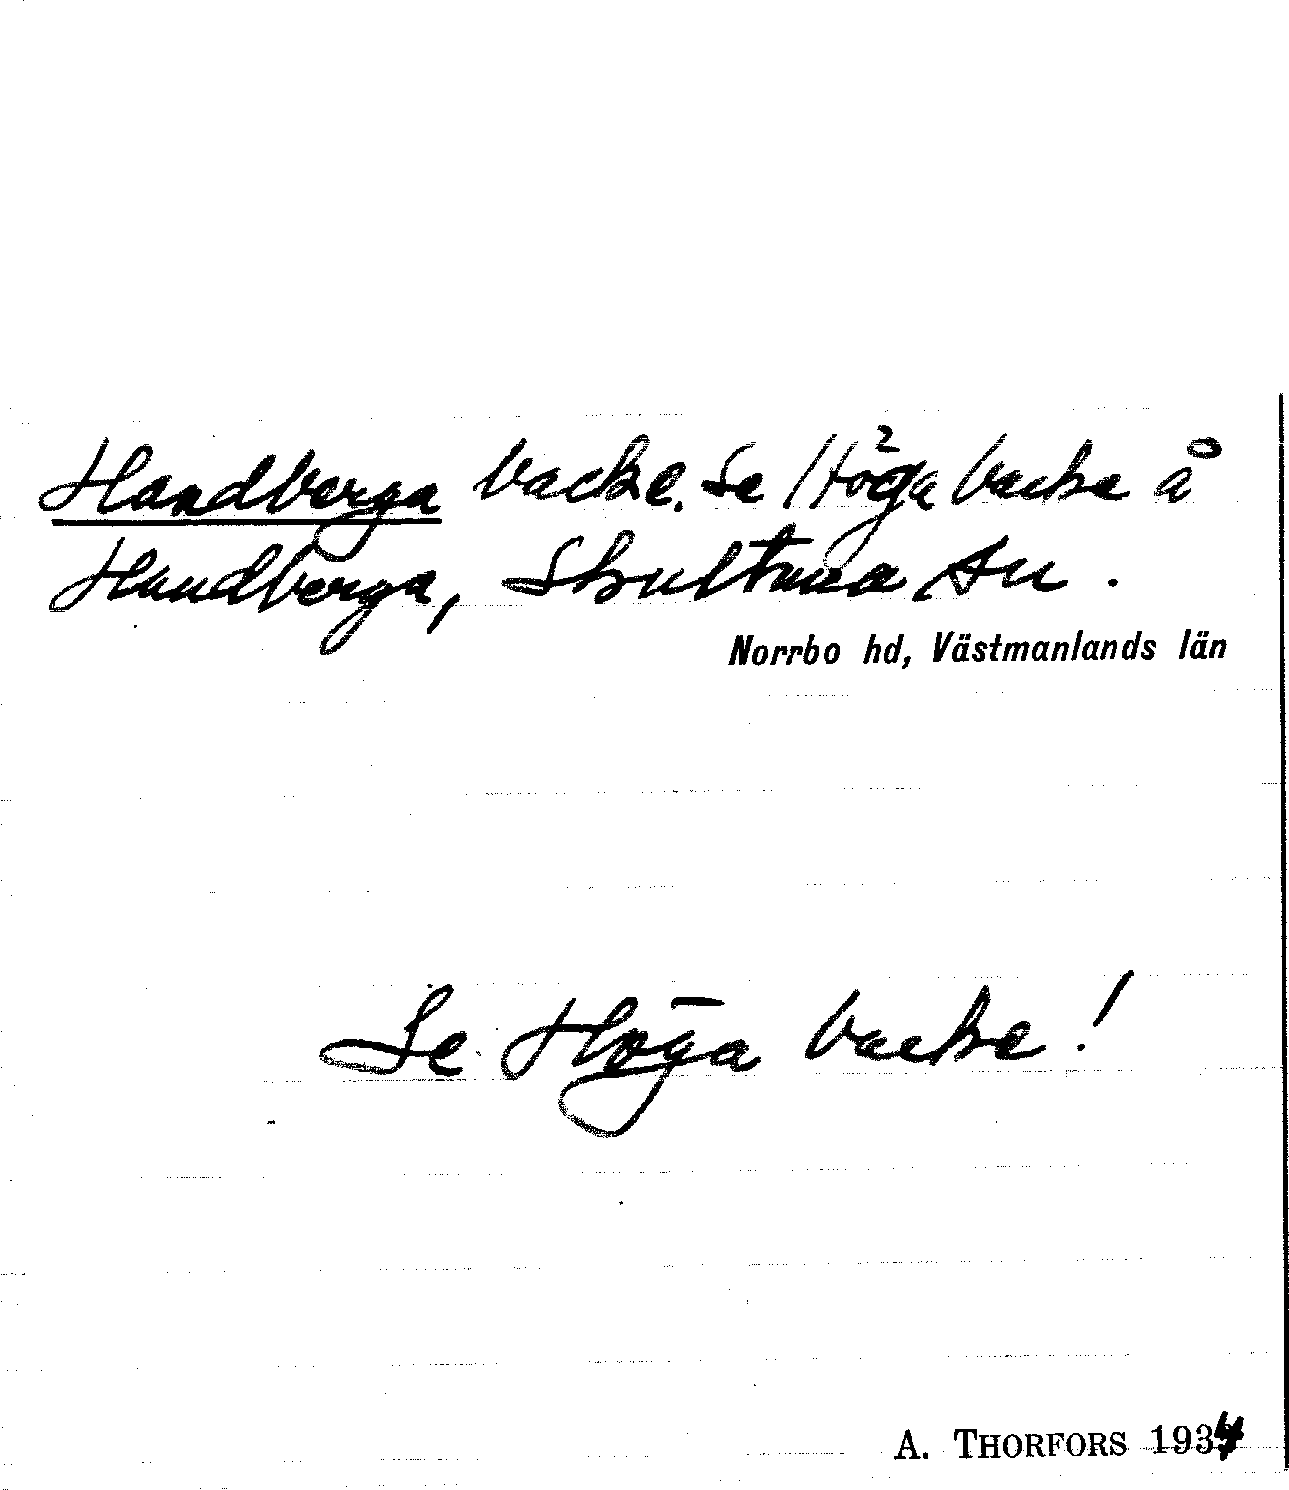 Handberga backe. Se Höga backe å
Handberga, Skultuna sn.
Norrbo hd, Västmanlands län
Se Höga backe!
A. THORFORS 1934